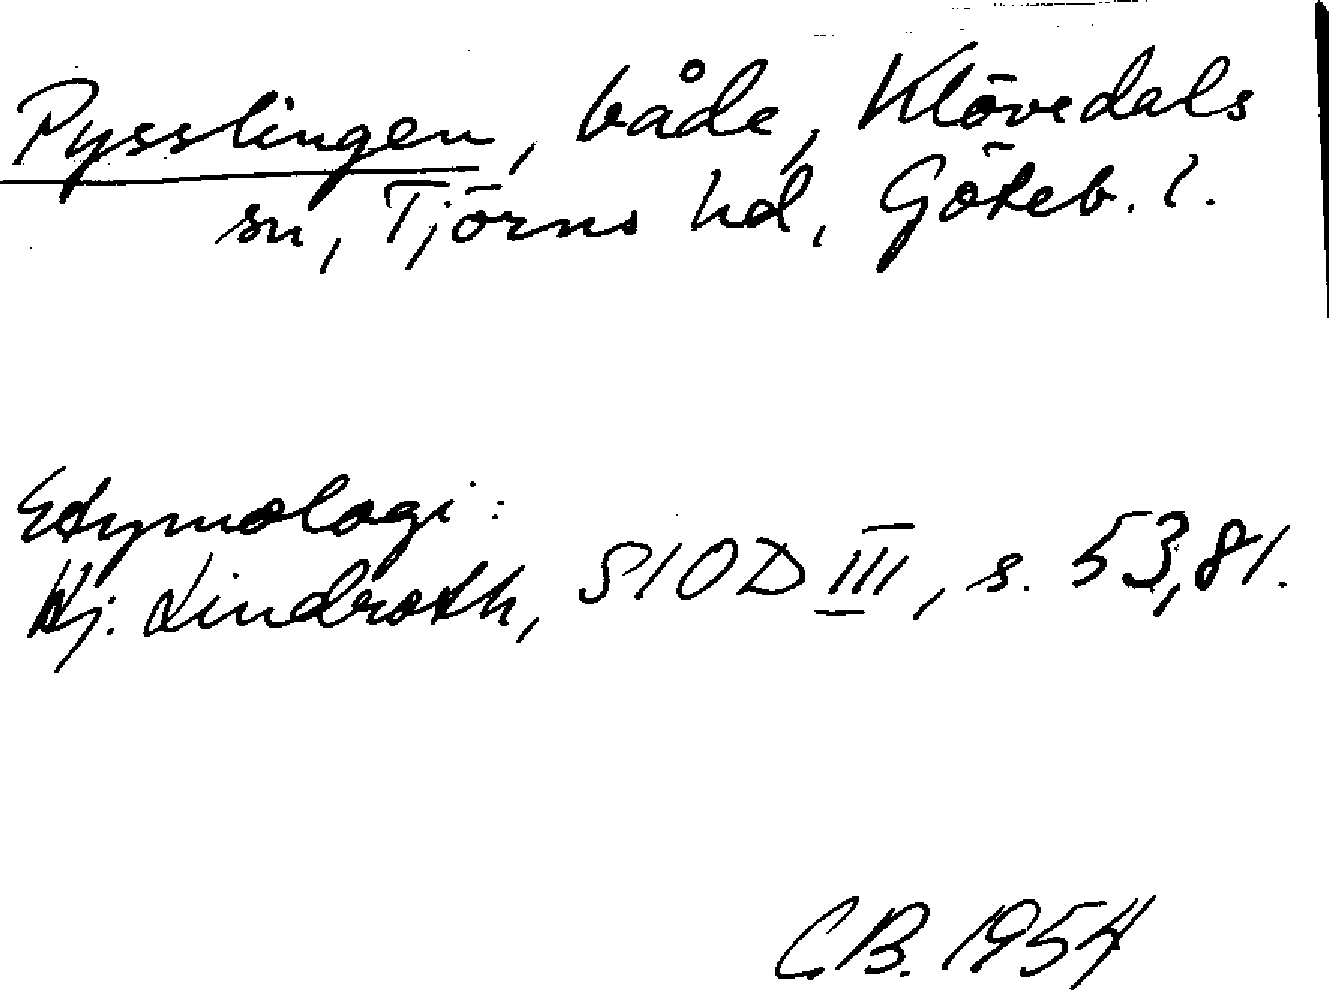 Pysslingen, både, Klövedals
sn, Tjörns hd, Göteb. l.
Etymologi:
Hj. Lindroth, SIOD III, s. 53,81.
C.B. 1954